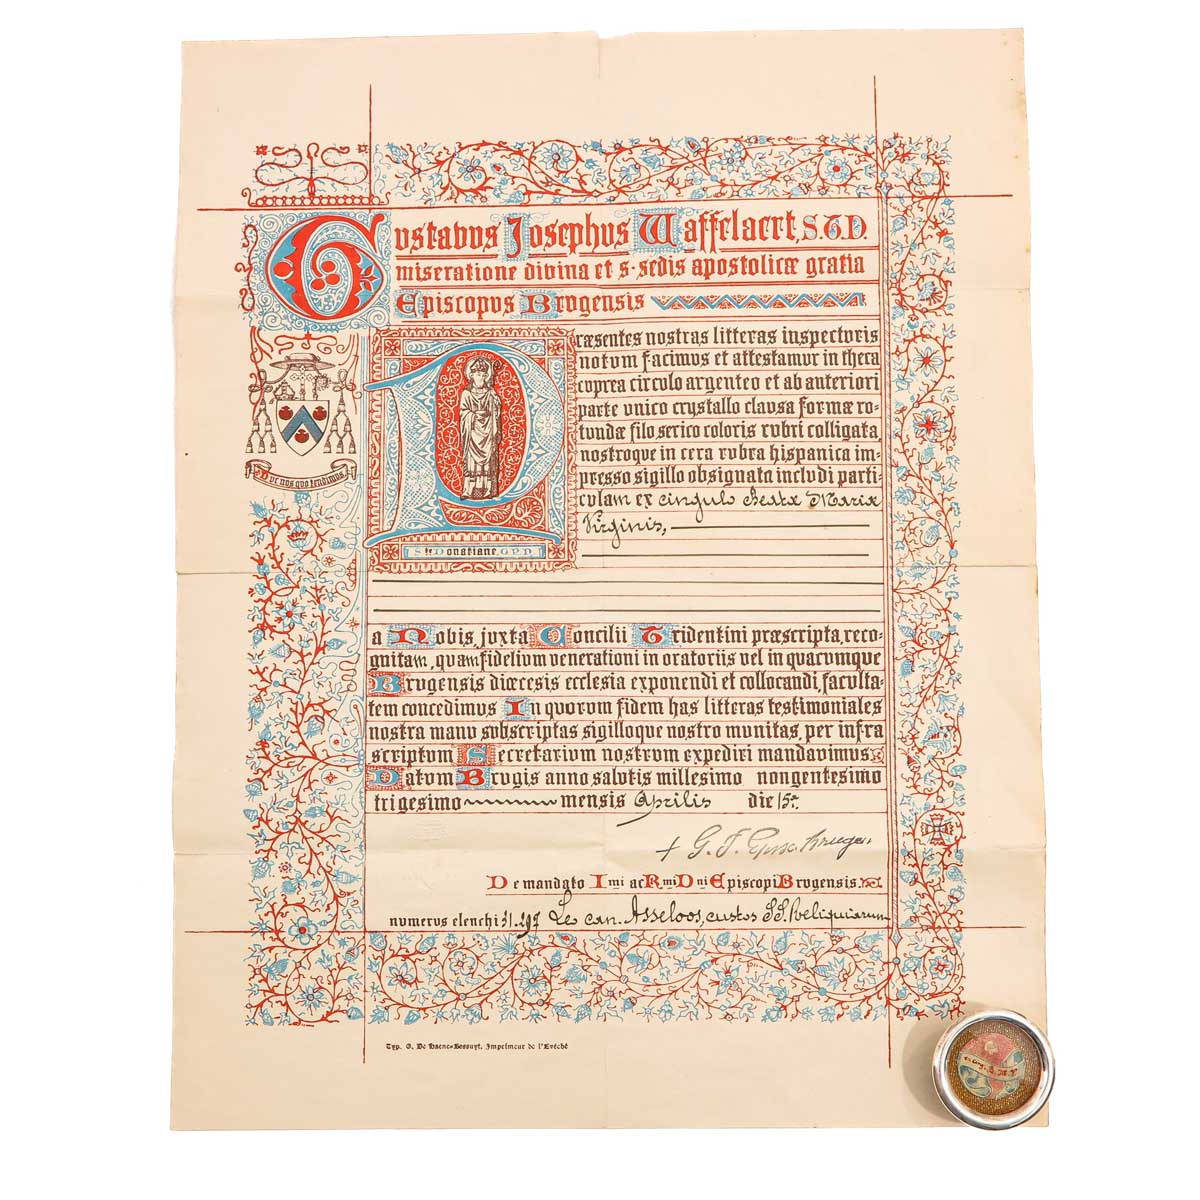 Gustavus Josephus Waffelaert, S.T.D.
miseratione divina et s. sedis apostolicæ gratia
Episcopus Brugensis
Præsentes nostras litteras inspecturis
notum facimus et attestamur in theca
cuprea circulo argenteo et ab anteriori
parte unico crystallo clausa formæ ro-
tundæ filo serico coloris rubri colligata,
nostroque in cera rubra hispanica im-
presso sigillo obsignata includi parti-
culam ex cingulo Beatæ Mariæ
Virginis,
Duc nos quo tendimus
Ste Donatiane, O.P.N.
a Nobis, juxta Concilii Tridentini præscripta, reco-
gnitam, quam fidelium venerationi in oratoriis vel in quacumque
Brugensis diœcesis ecclesia exponendi et collocandi, faculta-
tem concedimus In quorum fidem has litteras testimoniales
nostra manu subscriptas sigilloque nostro munitas, per infra
scriptum Secretarium nostrum expediri mandavimus.
Datum Brugis anno salutis millesimo nongentesimo
trigesimo mensis Aprilis die 15a
+ G. J.
De mandato Imi ac Rmi Dni Episcopi Brugensis.
numerus elenchi 31.297 Leo can. Asseloos, custos SS. Reliquiarum
Typ. G. De Haene-Bossuyt, Imprimeur de l'Evêché
B. M. V.